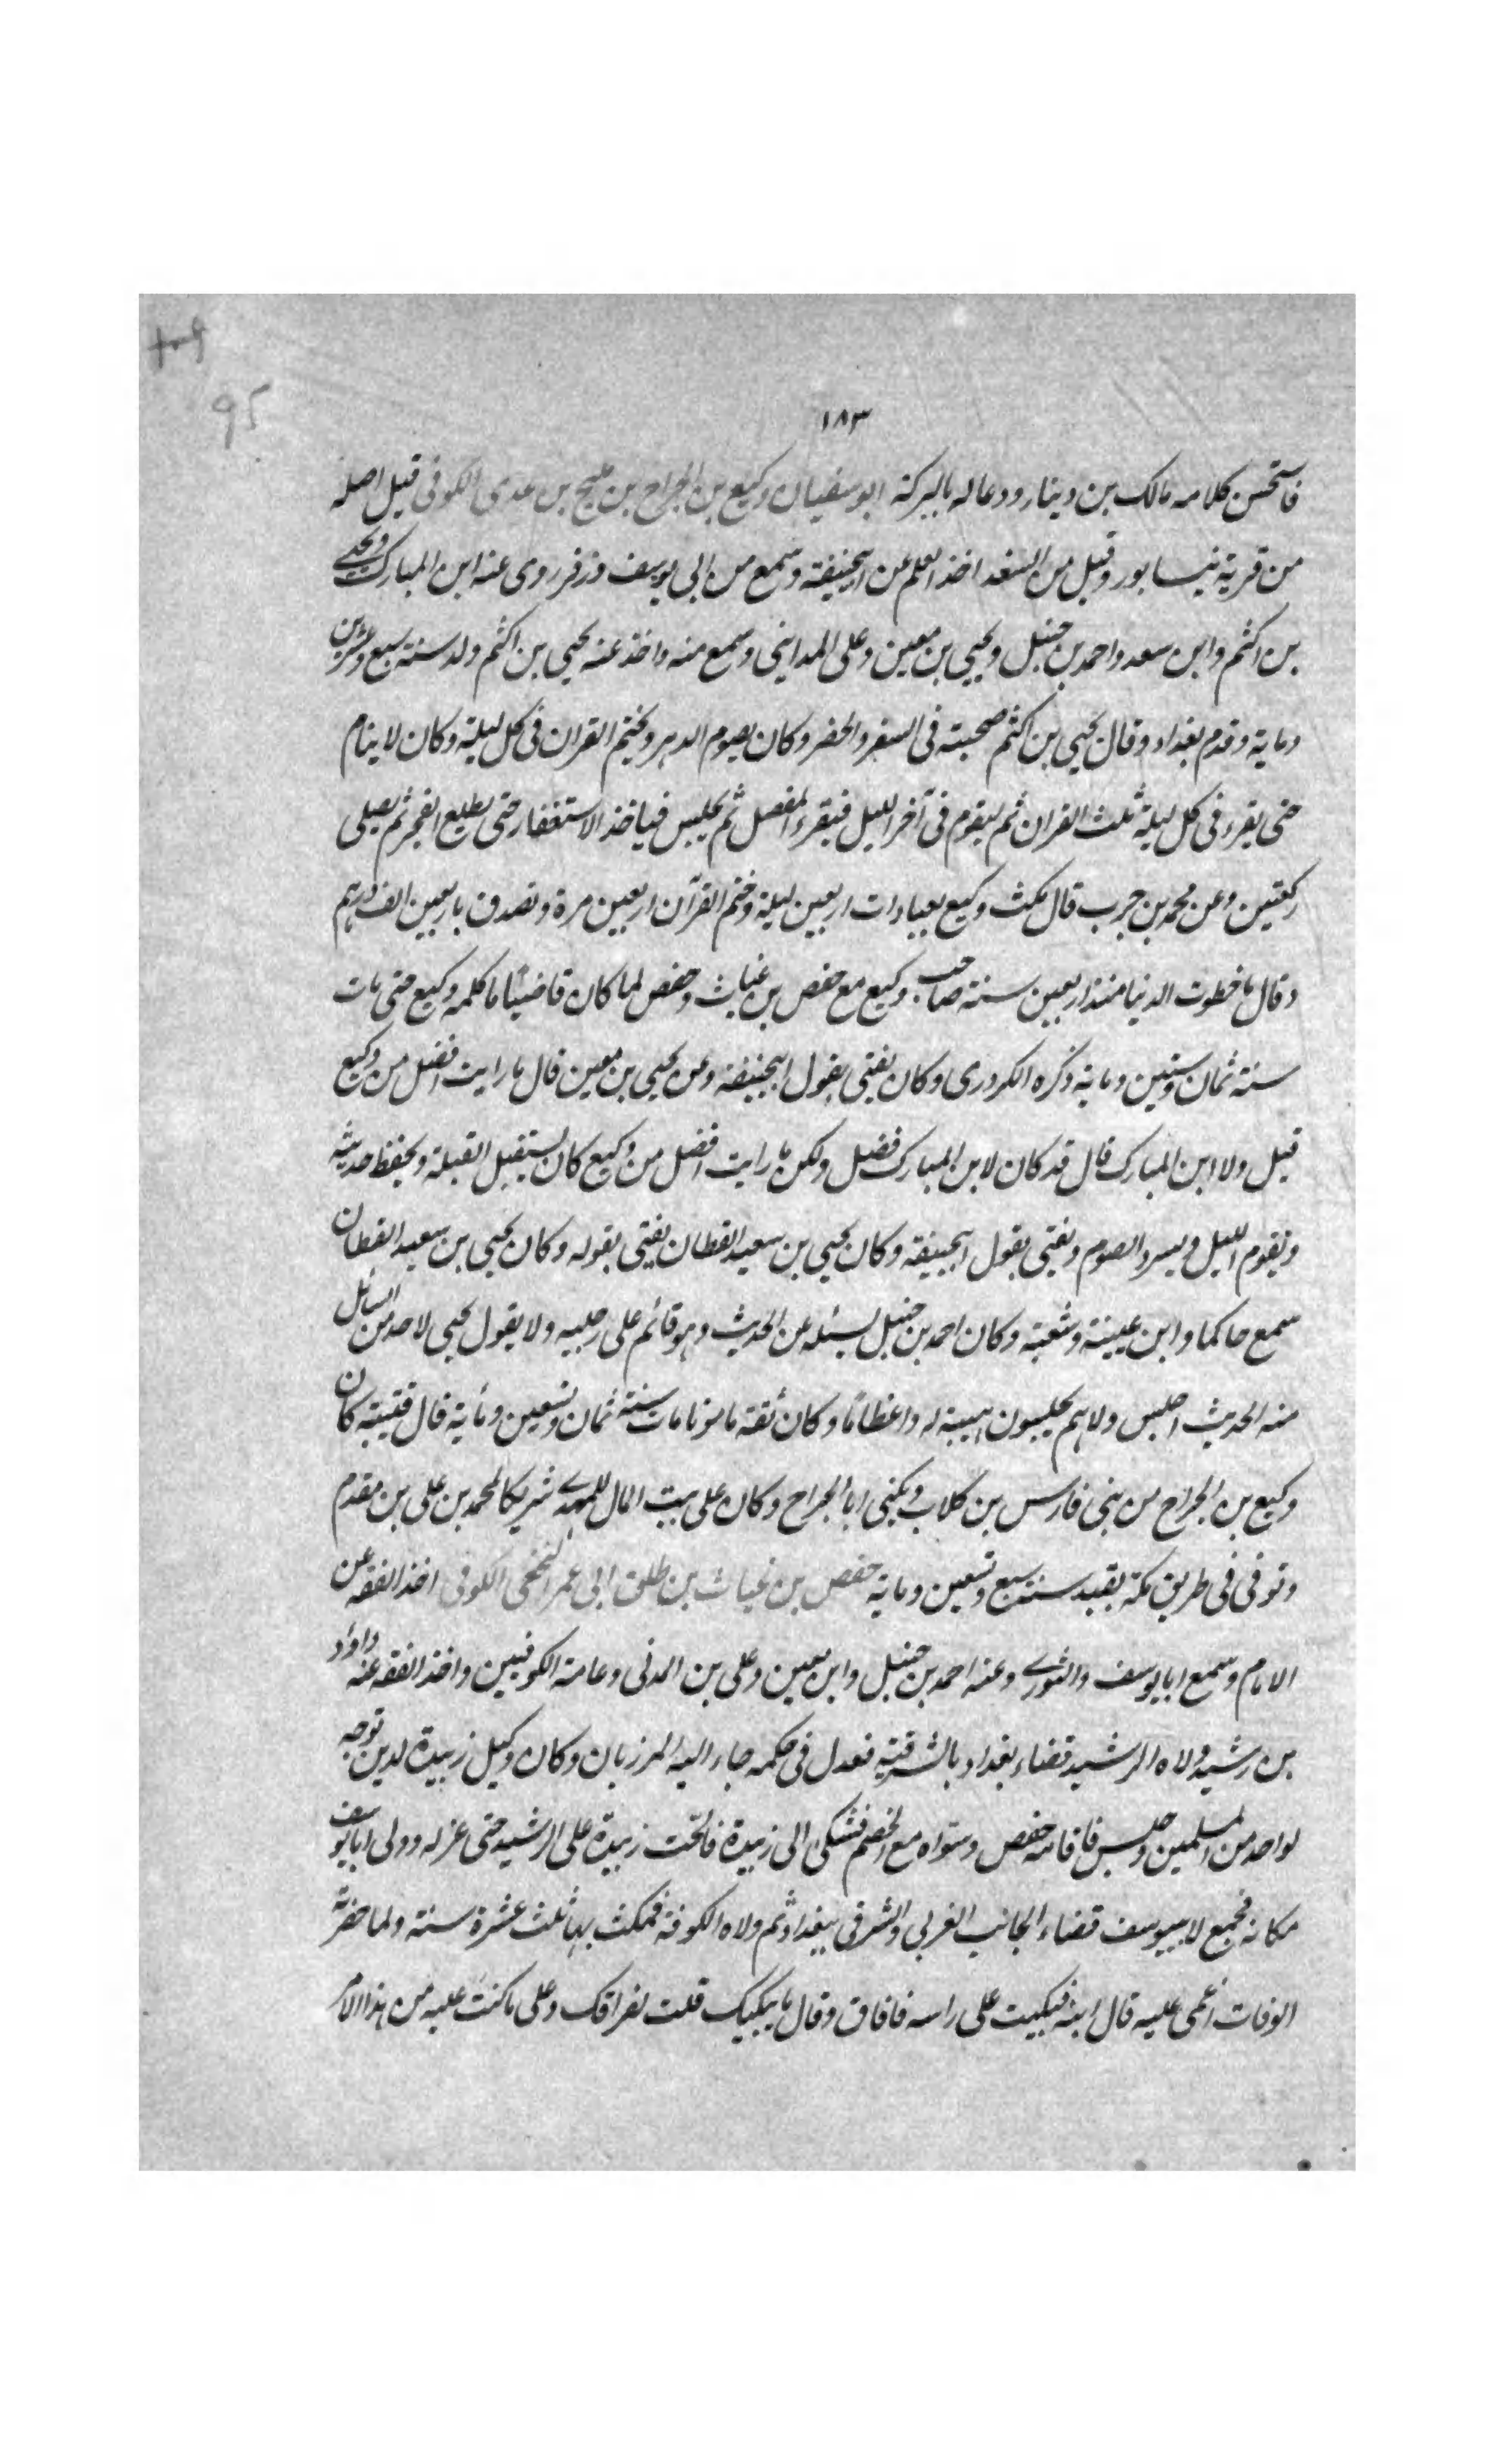 95
١٨٣
فاستحسن كلامه مالك بن دينار ودعا له بالبركة ابو سفيان وكيع بن الجراح بن مليح بن عدى الكوفى قيل اصله
من قرية نيسابور وقيل من السغد اخذ العلم عن ابيحنيفة وسمع من ابى يوسف وزفر روى عنه ابن المبارك ويحيى
بن اكثم وابن سعد واحمد بن حنبل ويحيى بن معين وعلى المداينى وسمع منه واخذ عنه يحيى بن اكثم ولد سنة سبع وعشرين
ومايه وقدم بغداد وقال يحيى بن اكثم صحبته فى السفر والحضر وكان يصوم الدهر ويختم القران فى كل ليلة وكان لا ينام
حتى يقرء فى كل ليلة ثلث القران ثم ليقوم فى آخر الليل فيقرء المفصل ثم يجلس فياخذ الاستغفار حتى يطلع الفجر ثم يصلى
ركعتين وعن محمد بن جرب قال مكث وكيع بعبادات اربعين ليلة وختم القرآن اربعين مرة وتصدق باربعين الف درهم
وقال ما خطوت الدنيا منذ اربعين سنة صاحب وكيع مع حفص بن غياث وحفص لما كان قاضيًا ما كلمه وكيع حتى مات
سنة ثمان وستين ومايه ذكره الكردرى وكان يفتى بقول ابيحنيفة وعن يحيى بن معين قال ما رايت افضل من وكيع
قيل ولا ابن المبارك قال قد كان لابن المبارك فضل ولكن ما رايت افضل من وكيع كان يستقبل القبلة ويحفظ حديثه
ويقوم الليل ويسرد الصوم ويفتى بقول ابيحنيفة وكان يحيى بن سعيد القطان يفتى بقوله وكان يحيى بن سعيد القطان
سمع حاكما وابن عيينة وشعبة وكان احمد بن حنبل يسئله عن الحديث وهو قائم على رجليه ولا يقول يحيى لاحد من السائل
منه الحديث اجلس ولا هم يجلسون هيبة له واعظامًا وكان ثقة مامونا مات سنة ثمان وتسعين ومأية قال قتيبة كان
وكيع بن الجراح من بنى فارس بن كلاب ويكنى ابا الجراح وكان على بيت المال للمهدى شريكا لمحمد بن على بن مقدم
وتوفى فى طريق مكة بفيد سنة سبع وتسعين ومايه حفص بن غياث بن طلق ابى عمر النخعى الكوفى اخذ الفقه عن
الامام وسمع ابا يوسف والثورى وعنه احمد بن حنبل وابن معين وعلى بن المدنى وعامة الكوفيين واخذ الفقه عنه داود
بن رشيد ولاه الرشيد قضاء بغداد بالشرقية فعدل فى حكمه جاء اليه المرزبان وكان وكيل زبيدة لدين توجه
لواحد من المسلمين وجلس فاقامه حفص وسواه مع الخصم فشكى الى زبيدة فالحت زبيدة على الرشيد حتى عزله وولى ابا يوسف
مكانه فجمع لابيوسف قضاء الجانب الغربى والشرقى ببغداد ثم ولاه الكوفة فمكث بها ثلث عشرة سنة ولما حضرته
الوفات اغمى عليه قال ابنه فبكيت على راسه فافاق وقال ما يبكيك قلت لفراقك وعلى ما كنت عليه من هذا الامر